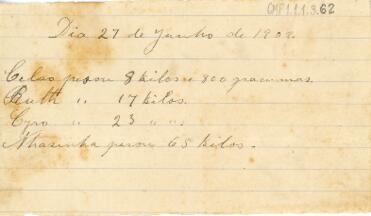 CMP 1.1.1.3.62
Dia 27 de Junho de 1909.
Celso pesou 8 kilos e 800 grammas.
Ruth " 17 kilos.
Cyro " 23 " ".
Nhasinha pesou 65 kilos.